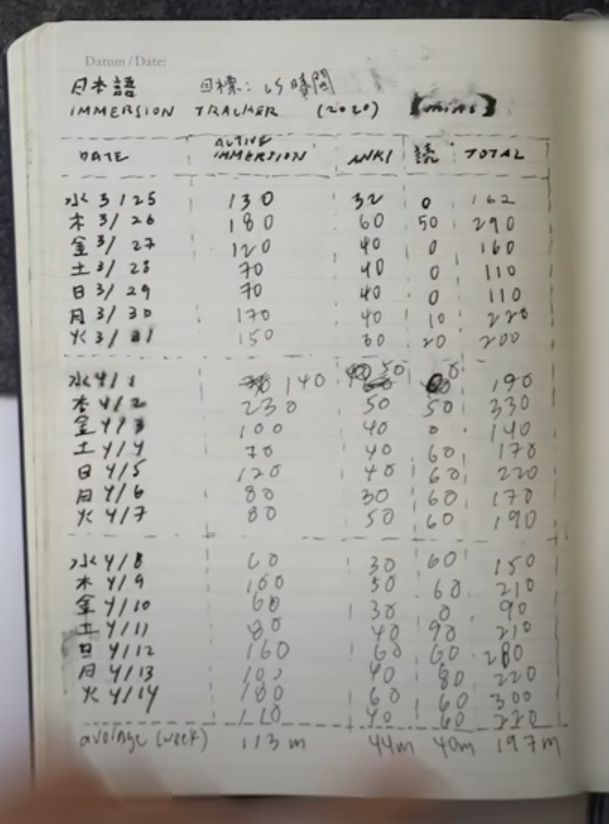 Datum / Date:
日本語 目標: 65時間
IMMERSION TRACKER (2020) [mins]
DATE ACTIVE IMMERSION ANKI 読 TOTAL
水 3/25 130 32 0 162
木 3/26 180 60 50 290
金 3/27 120 40 0 160
土 3/28 70 40 0 110
日 3/29 70 40 0 110
月 3/30 170 40 10 220
火 3/31 150 30 20 200
水 4/1 140 50 0 190
木 4/2 230 50 50 330
金 4/3 100 40 0 140
土 4/4 70 40 60 170
日 4/5 120 40 60 220
月 4/6 80 30 60 170
火 4/7 80 50 60 190
水 4/8 60 30 60 150
木 4/9 100 50 60 210
金 4/10 60 30 0 90
土 4/11 80 40 90 210
日 4/12 160 60 60 280
月 4/13 100 40 80 220
火 4/14 180 60 60 300
110 40 60 220
average (week) 113m 44m 40m 197m